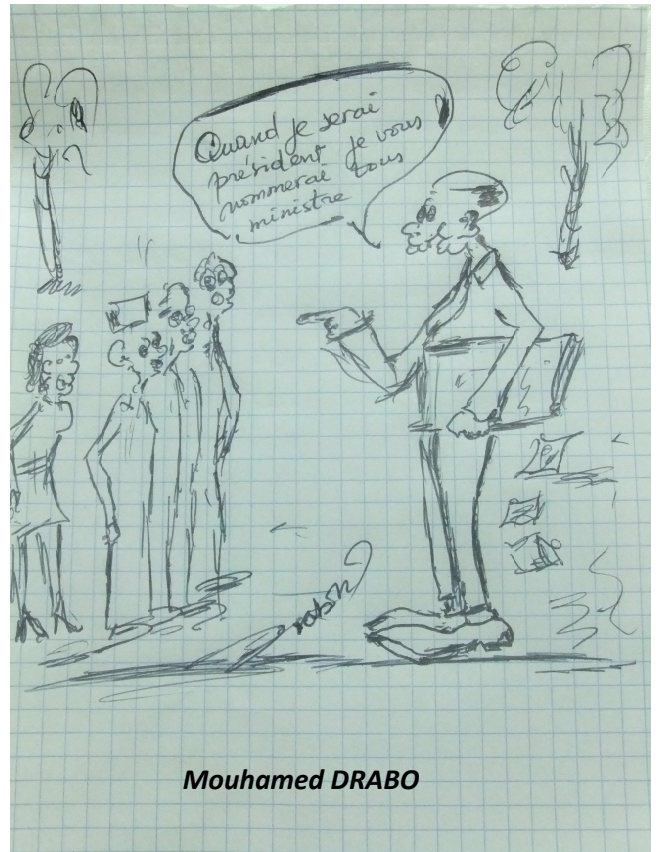 Quand je serai
président je vous
nommerai tous
ministre
Mouhamed DRABO